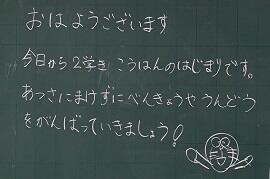 おはようございます
今日から2学き こうはんのはじまりです。
あつさにまけずにべんきょうや うんどう
をがんばっていきましょう!